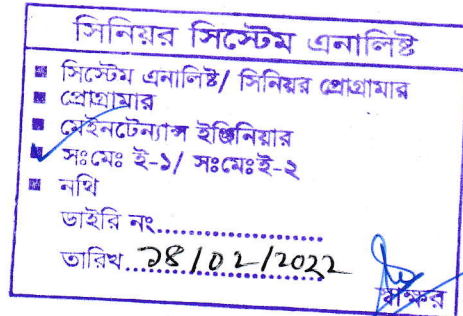 সিনিয়র সিস্টেম এনালিষ্ট
■ সিস্টেম এনালিষ্ট/ সিনিয়র প্রোগ্রামার
■ প্রোগ্রামার
■ মেইনটেন্যান্স ইঞ্জিনিয়ার
■ সঃমেঃ ই-১/ সঃমেঃই-২
■ নথি
ডাইরি নং..............................
তারিখ...১৪/০২/2022
স্বাক্ষর